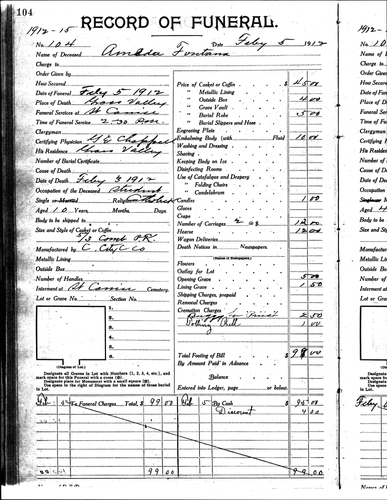 104
RECORD OF FUNERAL.
1912-15
No. 104
Date Feby 5 1912
Name of Deceased Amada Fontana
Charge to
Order Given by
How Secured
Date of Funeral Feby 5 1912
Place of Death Grass Valley
Funeral Services at St Canice
Time of Funeral Service 2-30 P.m.
Clergyman
Certifying Physician
His Residence Grass Valley
Number of Burial Certificate
Cause of Death
Date of Death Feby 3 1912
Occupation of the Deceased Student
Single or Married Religion Catholic
Aged 10 Years Months, Days.
Body to be shipped to
Size and Style of Casket or Coffin
Manufactured by
Metallic Lining
Outside Box
Number of Handles
Interment at St Canice Cemetery.
Lot or Grave No. Section No.
1.
2.
3.
4.
5.
6.
7.
8.
(Diagram of Lot.)
Designate all Graves in Lot with Numbers (1, 2, 3, 4, etc.), and
mark space for this Funeral with a cross
Designate place for Monument with a small square
Use space to right of Diagram for the names of those buried
in Lot.
Price of Casket or Coffin $ 45 00
" Metallic Lining
" Outside Box 4 00
" Grave Vault
" Burial Robe 5 00
" Burial Slippers and Hose
Engraving Plate
Embalming Body (with Fluid) 10 00
Washing and Dressing
Shaving
Keeping Body on Ice
Disinfecting Rooms
Use of Catafalque and Drapery
" Folding Chairs
" Candelabrum
Candles 1 00
Gloves
Crape
Number of Carriages 2 12 00
Hearse 12 00
Wagon Deliveries
Death Notices in Newspapers.
(Names of Newspapers.)
Flowers
Outlay for Lot
Opening Grave 5 00
Lining Grave 1 50
Shipping Charges, prepaid
Removal Charges
Cremation Charges
Buggy for Priest 2 50
Tolling Bell 1 00
Total Footing of Bill $ 99 00
By Amount Paid in Advance
Balance
Entered into Ledger, page or below.
Feb 5 To Funeral Charges Total, $ 99 00
Feb 5 By Cash $ 95 00
Discount 4 00
99 00
99 00
1912-15
No.
Name of
Charge to
Order Given
How Secured
Date of Funeral
Place of Death
Funeral Services
Time of Funeral
Clergyman
Certifying
His Residence
Number of
Cause of Death
Date of Death
Occupation
Single or
Aged
Body to be
Size and
Manufactured
Metallic Lining
Outside Box
Number of
Interment
Lot or Grave